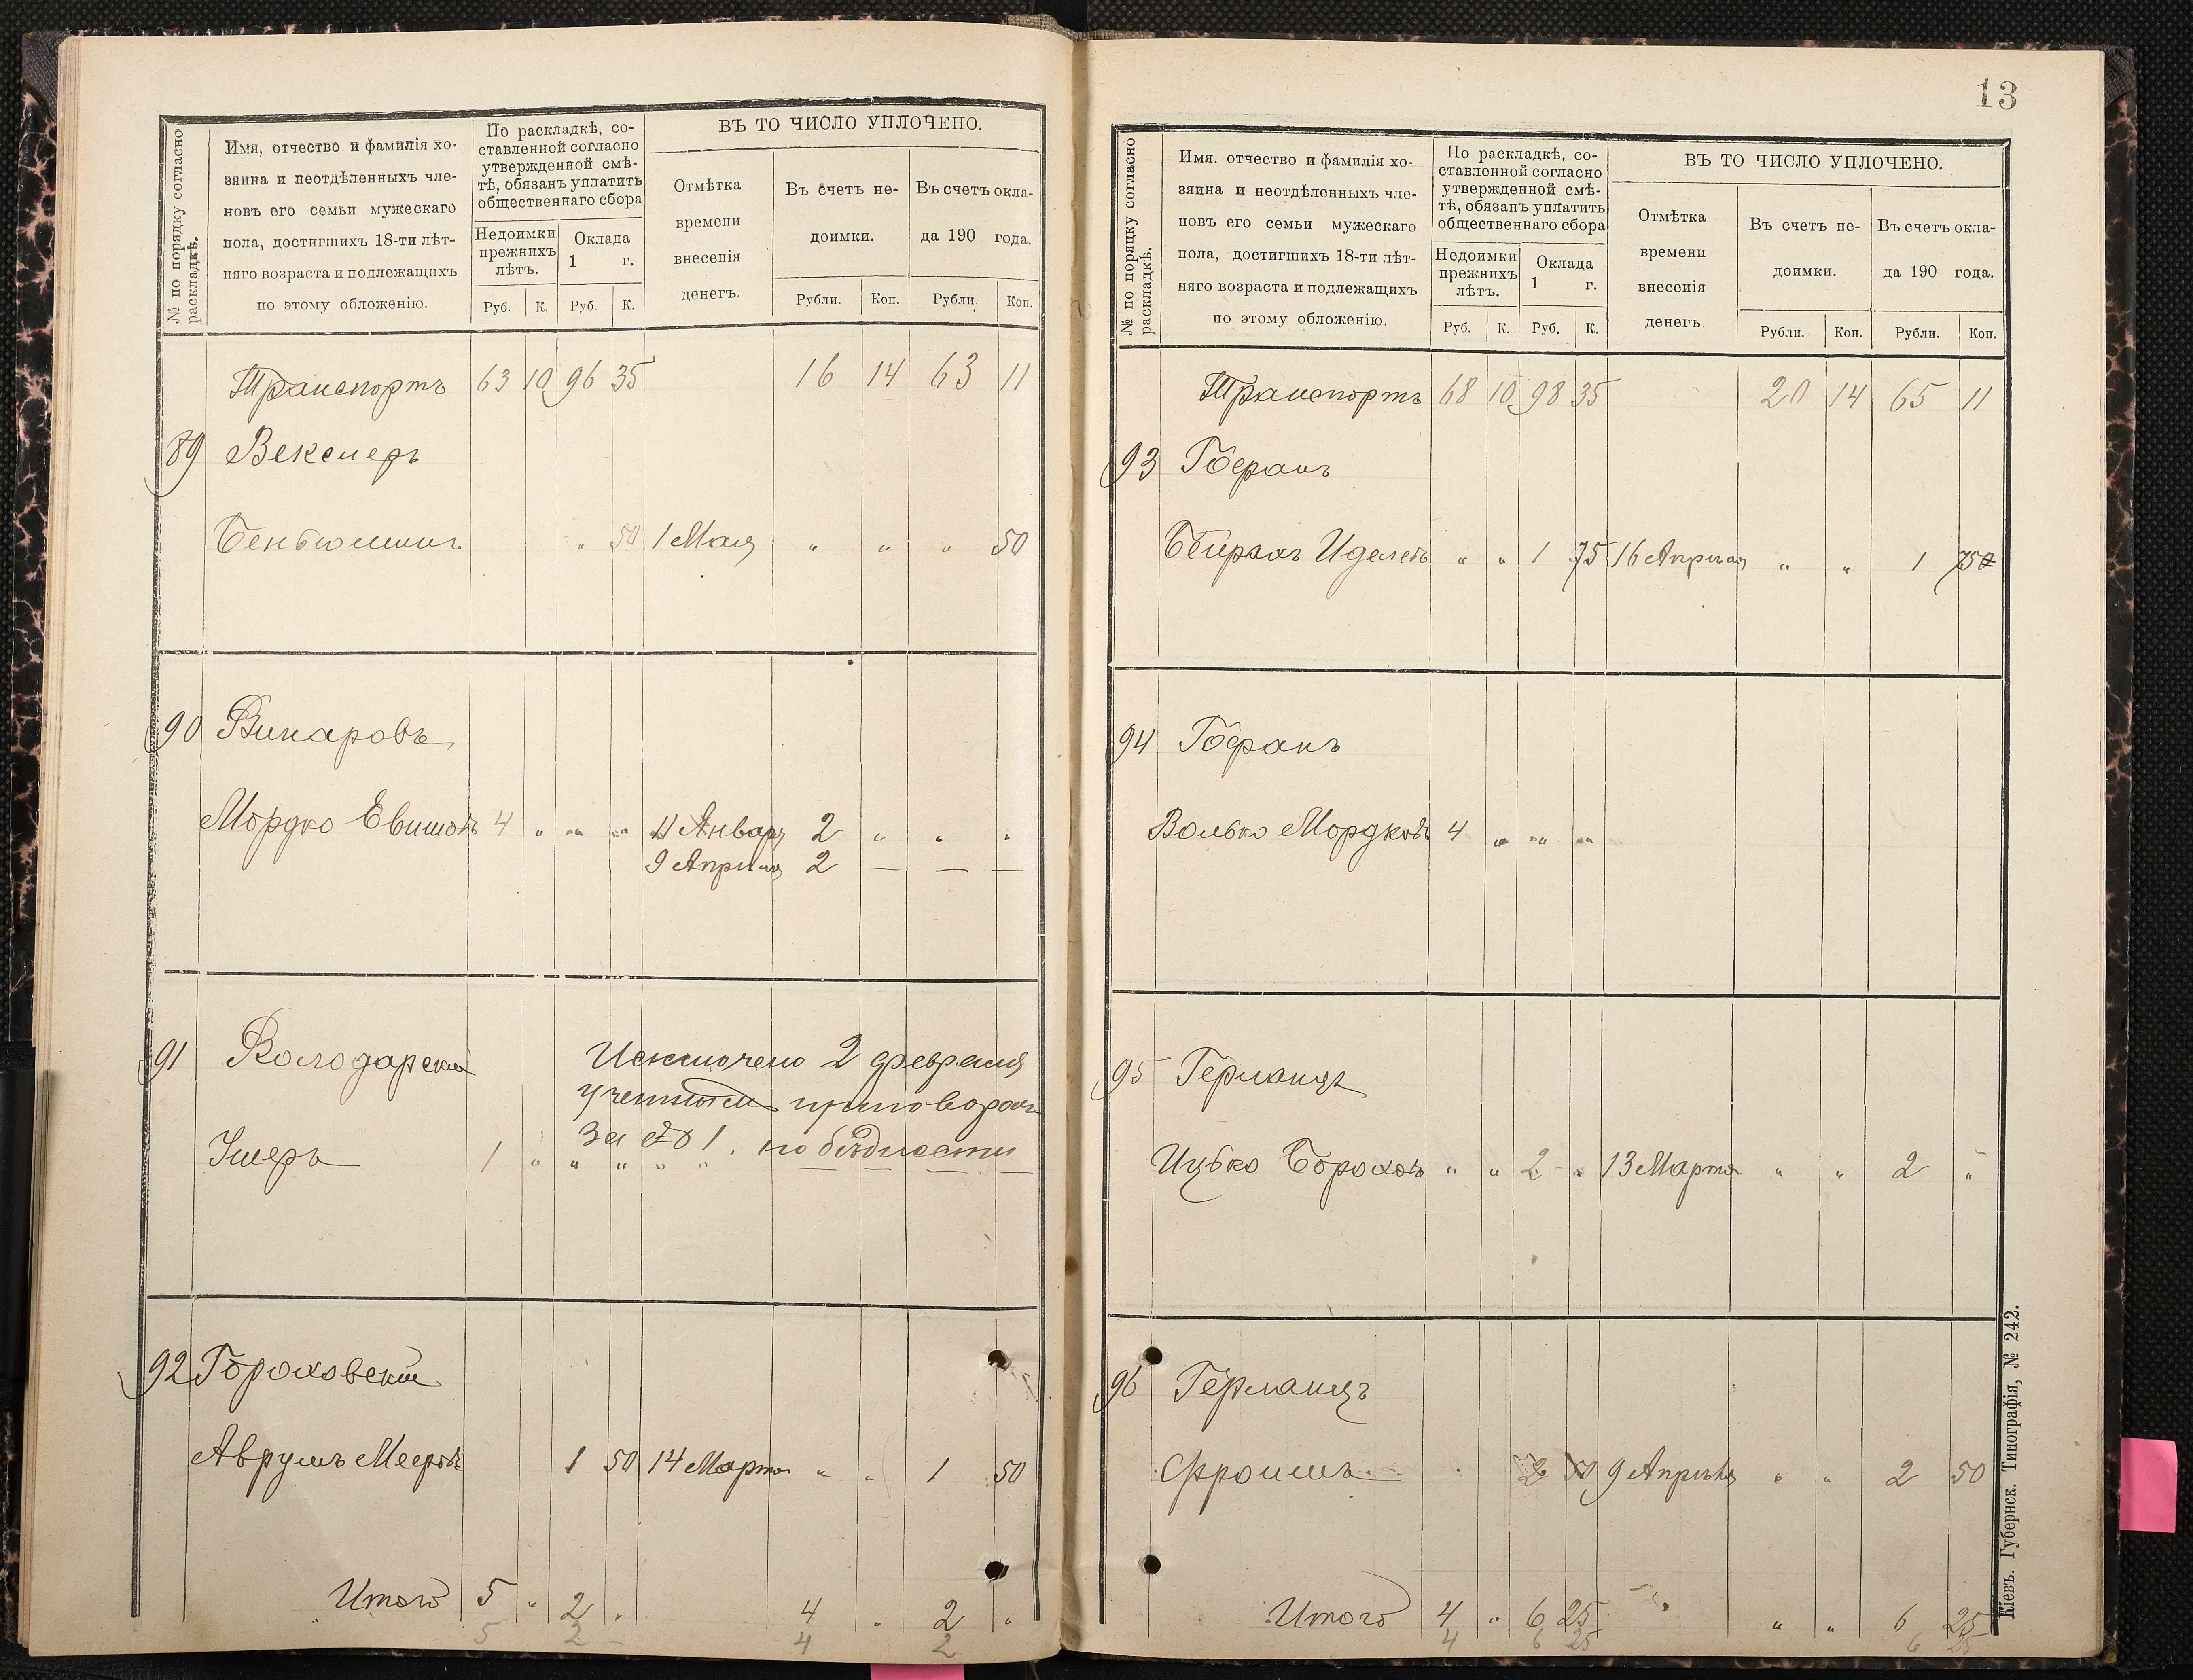 № по порядку согласно раскладкѣ.
Имя, отчество и фамилія хо-
зяина и неотдѣленныхъ чле-
новъ его семьи мужескаго
пола, достигшихъ 18-ти лѣт-
няго возраста и подлежащихъ
по этому обложенію.
По раскладкѣ, со-
ставленной согласно
утвержденной смѣ-
тѣ, обязанъ уплатить
общественнаго сбора
Недоимки
прежнихъ
лѣтъ.
Оклада
1 г.
Руб. К. Руб. К.
ВЪ ТО ЧИСЛО УПЛОЧЕНО.
Отмѣтка
времени
внесенія
денегъ.
Въ счетъ не-
доимки.
Въ счетъ окла-
да 190 года.
Рубли. Коп. Рубли. Коп.
Транспортъ 63 10 96 35 16 14 63 11
89 Векслеръ
Беньюминъ " 50 1 Мая " " " 50
90 Винаровъ
Мордко Евшовъ 4 " " " 11 Январ 2 " " "
9 Апрѣля 2 — — —
91 Володарскій
Исключено 2 февраля
учетнымъ приговоромъ
за № 1. по бѣдности
Ушеръ 1 " " " " "
92 Гороховскій
Аврумъ Меер. 1 50 14 Марта " " 1 50
Итого 5 " 2 " 4 " 2 "
5 2 — 4 2
13
№ по порядку согласно раскладкѣ.
Имя, отчество и фамилія хо-
зяина и неотдѣленныхъ чле-
новъ его семьи мужескаго
пола, достигшихъ 18-ти лѣт-
няго возраста и подлежащихъ
по этому обложенію.
По раскладкѣ, со-
ставленной согласно
утвержденной смѣ-
тѣ, обязанъ уплатить
общественнаго сбора
Недоимки
прежнихъ
лѣтъ.
Оклада
1 г.
Руб. К. Руб. К.
ВЪ ТО ЧИСЛО УПЛОЧЕНО.
Отмѣтка
времени
внесенія
денегъ.
Въ счетъ не-
доимки.
Въ счетъ окла-
да 190 года.
Рубли. Коп. Рубли. Коп.
Транспортъ 68 10 98 35 20 14 65 11
93 Гофранъ
Иделевъ " " 1 75 16 Апрѣля " " 1 75
94 Гофранъ
Волько Мордковъ 4 " " "
95 Германъ
Ицько Бороховъ " " 2 " 13 Марта " " 2 "
96 Германъ
Фроимъ 2 50 9 Апрѣля " " 2 50
Итого 4 " 6 25 " " 6 25
4 6 25 6 25
Кіевъ. Губернск. Типографія, № 242.